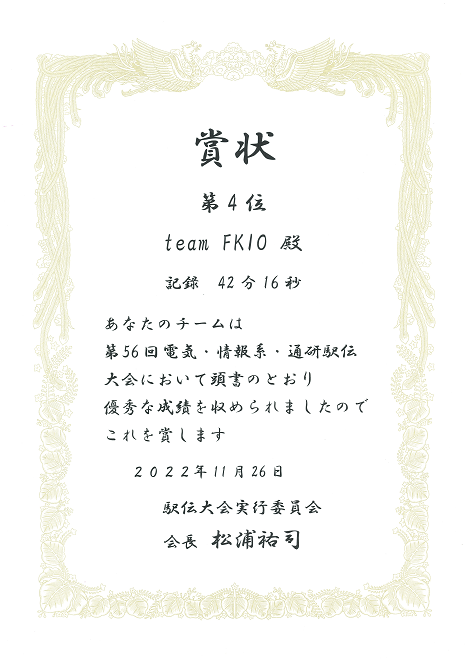 賞状
第4位
team FKIO 殿
記録 42分16秒
あなたのチームは
第56回電気・情報系・通研駅伝
大会において頭書のとおり
優秀な成績を収められましたので
これを賞します
2022年11月26日
駅伝大会実行委員会
会長 松浦祐司